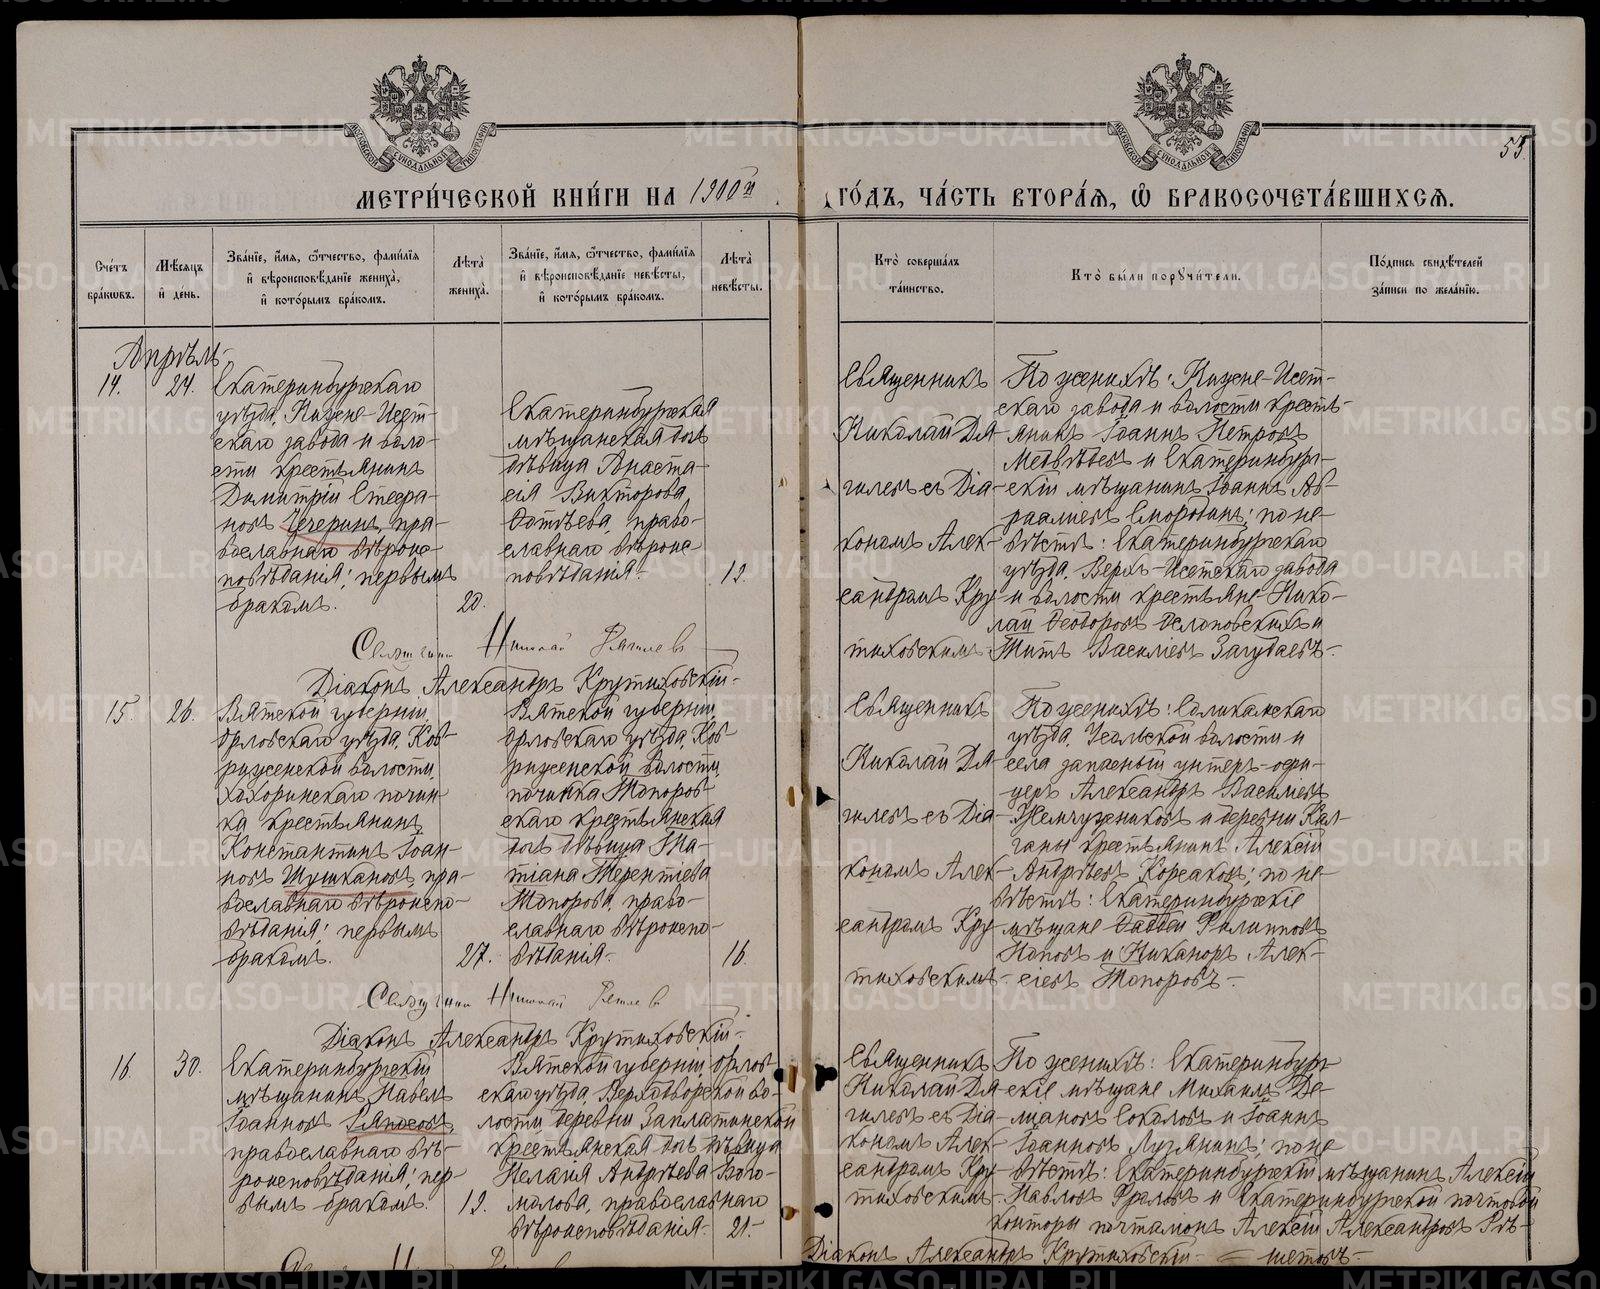 МЕТРИ́ЧЕСКОЙ КНИ́ГИ НА 1900й ГО́ДЪ, ЧА́СТЬ ВТОРА́Я, Ѡ҆ БРАКОСОЧЕТА́ВШИХСЯ.
53.
Сче́тъ бра́кωвъ.
Мѣ́сяцъ и҆ де́нь.
Зва́нїе, и҆́мя, ѻ҆́тчество, фами́лїя и҆ вѣроисповѣ́данїе жениха̀, и҆ кото́рымъ бра́комъ.
Лѣта̀ жениха̀.
Зва́нїе, и҆́мя, ѻ҆́тчество, фами́лїя и҆ вѣроисповѣ́данїе невѣ́сты, и҆ кото́рымъ бра́комъ.
Лѣта̀ невѣ́сты.
Кто̀ соверша́лъ та́инство.
Кто̀ бы́ли порꙋчи́тели.
По́дпись свидѣ́телей за́писи по жела́нїю.
Апрѣль
14.
24.
Екатеринбургскаго
уѣзда, Нижне-Исет-
скаго завода и воло-
сти крестьянинъ
Димитрій Стефа-
новъ Чечеринъ, пра-
вославнаго вѣроис-
повѣданія; первымъ
бракомъ.
20.
Екатеринбургская
мѣщанская дочь
дѣвица Анаста-
сія Викторова
Фотѣева, право-
славнаго вѣроис-
повѣданія.
19.
Священникъ
Николай Дя-
гилевъ съ Діа-
кономъ Алек-
сандромъ Кру-
тиховскимъ.
По женихѣ: Нижне-Исет-
скаго завода и волости кресть-
янинъ Іоаннъ Петровъ
Медвѣдевъ и Екатеринбург-
скій мѣщанинъ Іоаннъ Ав-
рааміевъ Смородинъ; по не-
вѣстѣ: Екатеринбургскаго
уѣзда, Верхъ-Исетскаго завода
и волости крестьяне Нико-
лай Феодоровъ и
Титъ Василіевъ Загудаевъ.
Священникъ Николай Дягилевъ
Діаконъ Александръ Крутиховскій.
15.
26.
Вятской губерніи,
Орловскаго уѣзда, Ков-
риженской волости,
Хохоринскаго почин-
ка крестьянинъ
Константинъ Іоан-
новъ Шушкановъ, пра-
вославнаго вѣроиспо-
вѣданія; первымъ
бракомъ.
27.
Вятской губерніи,
Орловскаго уѣзда, Ков-
риженской волости,
починка Топоров-
скаго крестьянская
дочь дѣвица Та-
тіана Терентіева
Топорова, право-
славнаго вѣроиспо-
вѣданія.
16.
Священникъ
Николай Дя-
гилевъ съ Діа-
кономъ Алек-
сандромъ Кру-
тиховскимъ.
По женихѣ: Соликамскаго
уѣзда, Усольской волости и
села запасный унтеръ-офи-
церъ Александръ Василіевъ
Жемчужниковъ и деревни Кал-
ганы крестьянинъ Алексій
Андрѣевъ Корсаковъ; по не-
вѣстѣ: Екатеринбургскіе
мѣщане Фаддей Филипповъ
Поповъ и Никаноръ Алек-
сіевъ Топоровъ.
Священникъ Николай Дягилевъ
Діаконъ Александръ Крутиховскій.
16
30.
Екатеринбургскій
мѣщанинъ Павелъ
Іоанновъ Ряпосовъ,
православнаго вѣ-
роисповѣданія; пер-
вымъ бракомъ.
19.
Вятской губерніи, Орлов-
скаго уѣзда, Верходворской во-
лости деревни Заплатинской
крестьянская дочь дѣвица
Пелагія Андрѣева Бого-
молова, православнаго
вѣроисповѣданія.
21.
Священникъ
Николай Дя-
гилевъ съ Діа-
кономъ Алек-
сандромъ Кру-
тиховскимъ.
По женихѣ: Екатеринбург-
скіе мѣщане Михаилъ Де-
мидовъ Соколовъ и Іоаннъ
Іоанновъ Лузянинъ; по не-
вѣстѣ: Екатеринбургскій мѣщанинъ Алексій
Павловъ Фроловъ и Екатеринбургской почтовой
конторы почталіонъ Алексій Александровъ Рѣ-
шетовъ.
Діаконъ Александръ Крутиховскій.
METRIKI.GASO-URAL.RU